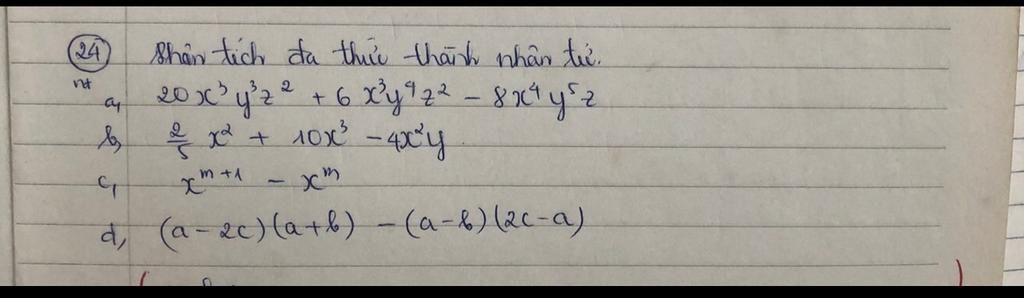 24 Phân tích đa thức thành nhân tử.
a, 20x³y³z² + 6x³y⁴z² - 8x⁴y⁵z
b, 2/5 x² + 10x³ - 4x²y
c, xᵐ⁺¹ - xᵐ
d, (a-2c)(a+b) - (a-b)(2c-a)